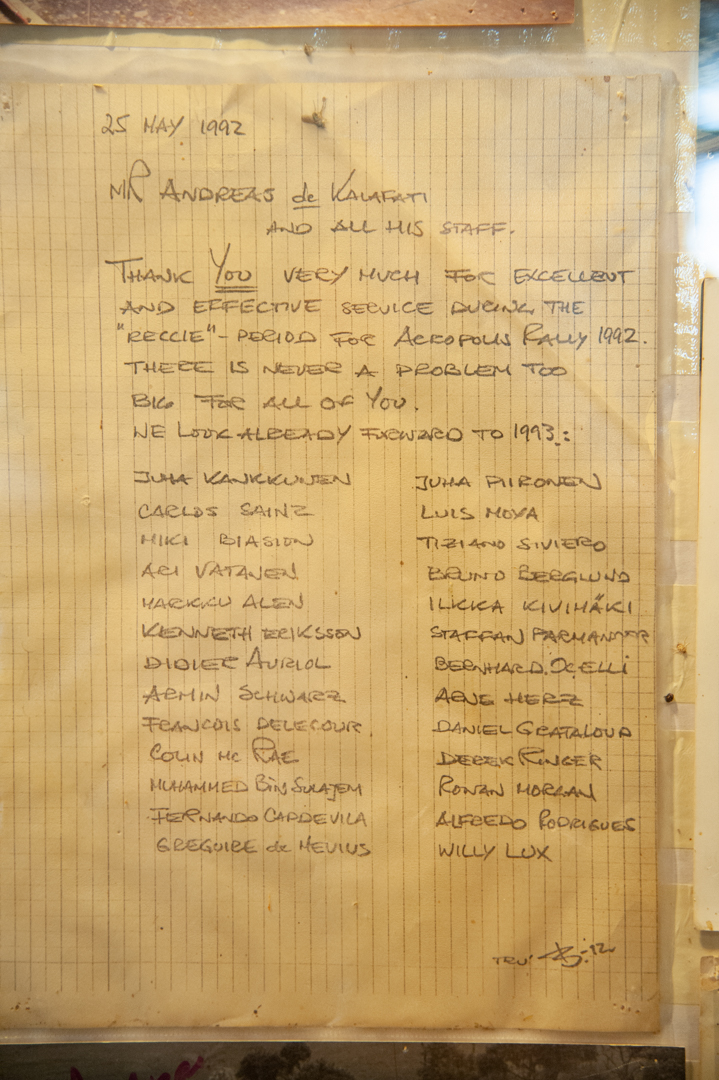 25 MAY 1992
MR ANDREAS de KALAFATI
AND ALL HIS STAFF.
THANK YOU VERY MUCH FOR EXCELLENT
AND EFFECTIVE SERVICE DURING THE
"RECCIE"-PERIOD FOR ACROPOLIS RALLY 1992.
THERE IS NEVER A PROBLEM TOO
BIG FOR ALL OF YOU.
WE LOOK ALREADY FORWARD TO 1993.:
JUHA KANKKUNEN JUHA PIIRONEN
CARLOS SAINZ LUIS MOYA
MIKI BIASION TIZIANO SIVIERO
ARI VATANEN BRUNO BERGLUND
MARKKU ALEN ILKKA KIVIMÄKI
KENNETH ERIKSSON STAFFAN PARMANDER
DIDIER AURIOL BERNHARD. OCELLI
ARMIN SCHWARZ ARNE HERZ
FRANCOIS DELECOUR DANIEL GRATALOUP
COLIN MC RAE DEREK RINGER
MUHAMMED BIN SULAJEM RONAN MORGAN
FERNANDO CAPDEVILA ALFREDO RODRIGUES
GREGOIRE de MEVIUS WILLY LUX